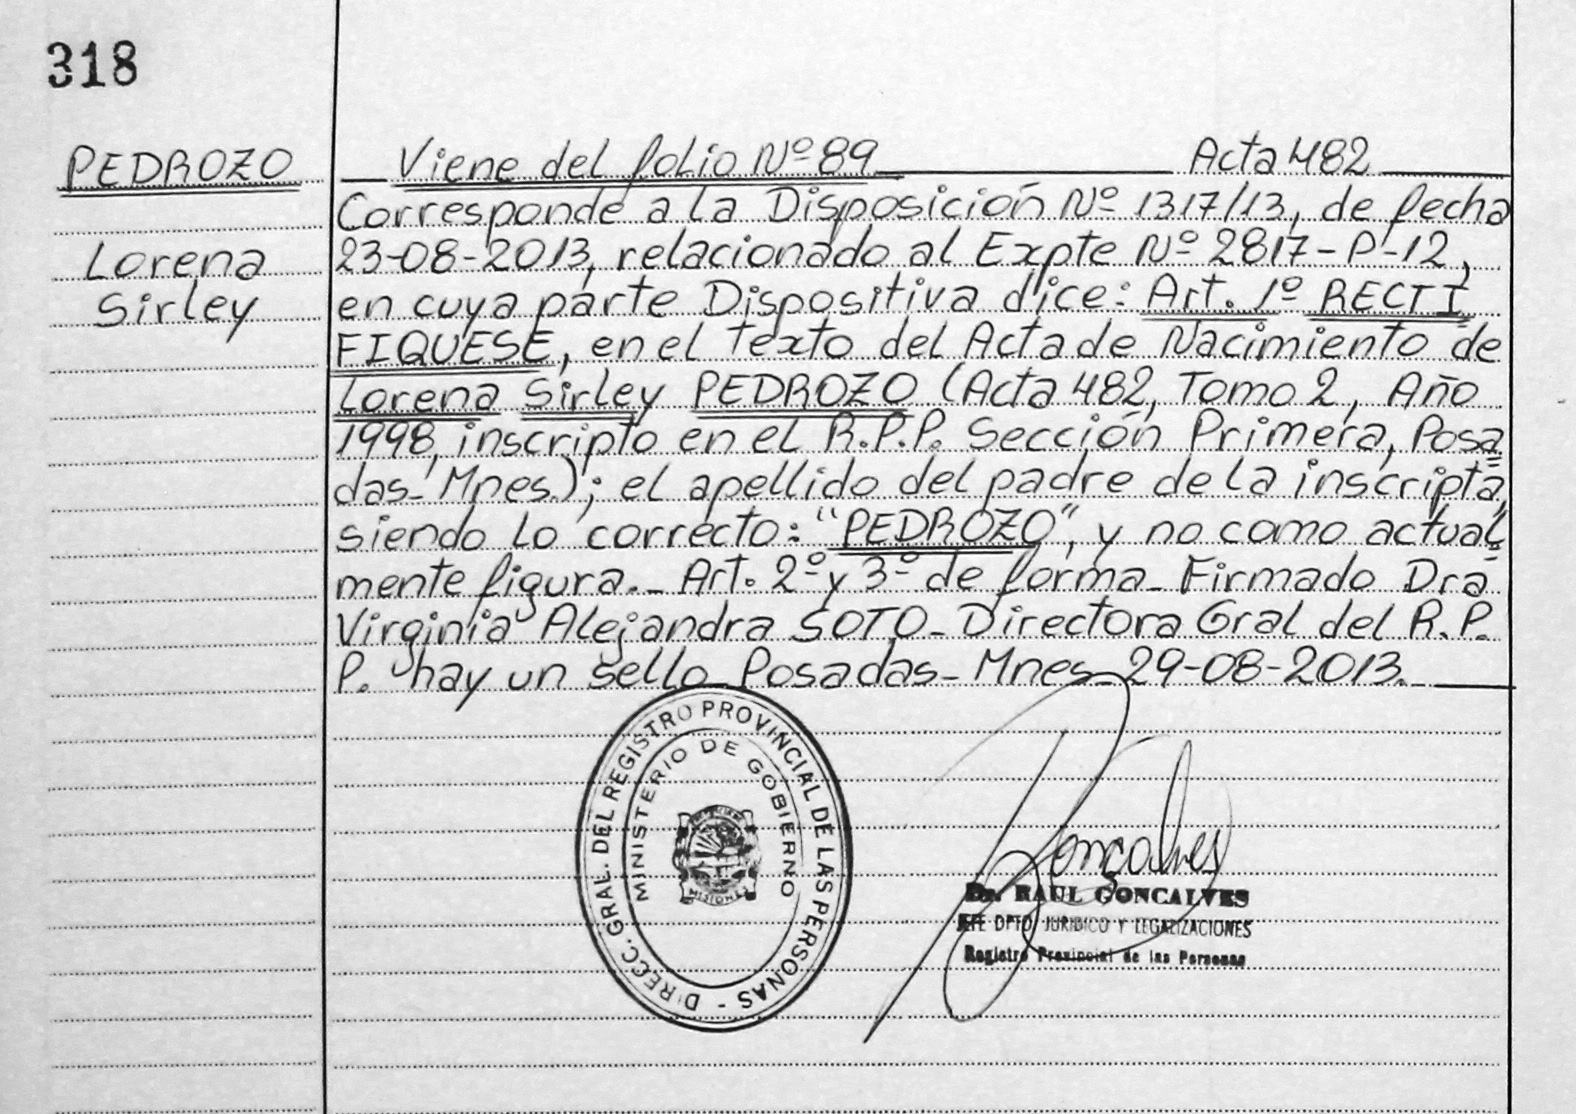 318
PEDROZO
Lorena
Sirley
Viene del folio Nº 89 Acta 482
Corresponde a la Disposición Nº 1317/13, de fecha
23-08-2013, relacionado al Expte Nº 2817-P-12,
en cuya parte Dispositiva dice: Art. 1º RECTI
FIQUESE, en el texto del Acta de Nacimiento de
Lorena Sirley PEDROZO (Acta 482, Tomo 2, Año
1998, inscripto en el R.P.P. Sección Primera, Posa
das-Mnes.); el apellido del padre de la inscripta,
siendo lo correcto: "PEDROZO", y no como actual
mente figura._ Art. 2º y 3º de forma_ Firmado Dra
Virginia Alejandra SOTO_ Directora Gral del R.P.
P. hay un sello_ Posadas_ Mnes_ 29-08-2013.
DIRECC. GRAL. DEL REGISTRO PROVINCIAL DE LAS PERSONAS -
MINISTERIO DE GOBIERNO
MISIONES
Goncalves
Dr. RAUL GONCALVES
JEFE DPTO JURIDICO Y LEGALIZACIONES
Registro Provincial de las Personas